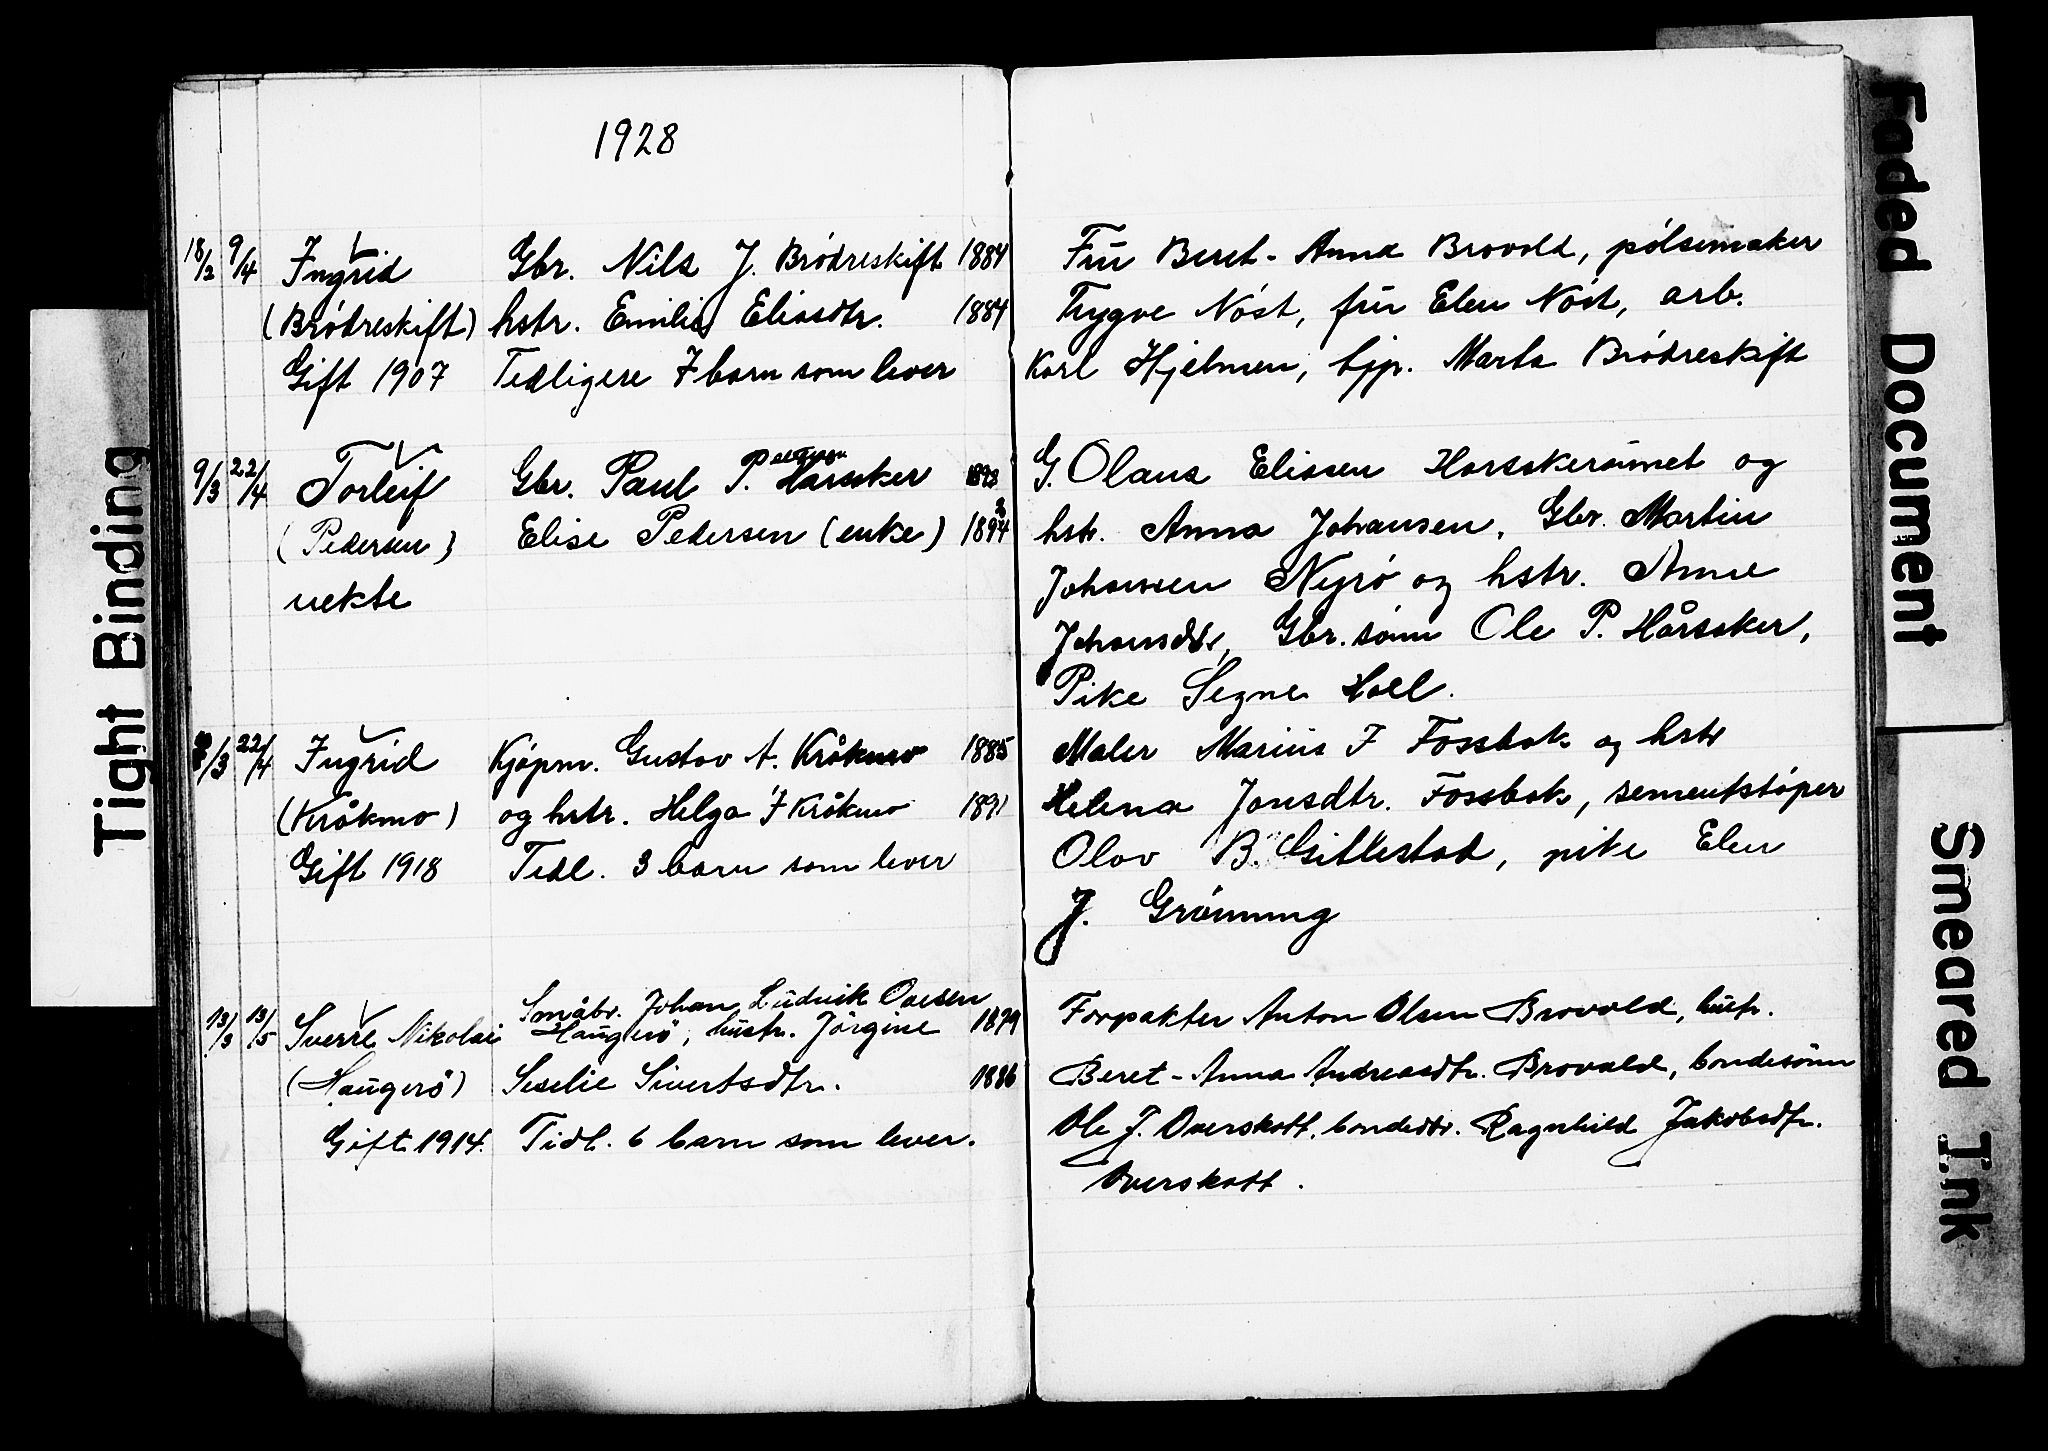 1928
18/2 9/4 Ingrid Gbr. Nils J. Brødreskift 1884
(Brødreskift) hstr. Emilie Eliasdtr. 1884
Gift 1907 Tidligere 7 barn som lever
9/3 22/4 Torleif Gbr. Paul P. Hårsaker
(Pedersen) Elise Pedersen (enke) 1894
uekte
8/3 22/4 Ingrid Kjøpm. Gustav A. Kråkmo 1885
(Kråkmo) og hstr. Helga J Kråkmo 1891
Gift 1918 Tidl. 3 barn som lever
13/3 13/5 Sverre Nikolai Småbr. Johan Ludvik Ovesen
Haugerö, hustr. Jörgine 1879
(Haugerö) Seselie Sivertsdtr. 1886
Gift 1914. Tidl. 6 barn som lever.
Fru Beret-Anna Brovold, pølsemaker
Trygve Nøst, fru Elen Nøst, arb.
Karl Hjelmen, hjp. Marta Brødreskift
G. Olaus Eliasen Harsakerøimet og
hstr. Anna Johansen, Gbr. Martin
Johansen Nyrø og hstr. Anne
Johansdtr, Gbr. sønn Ole P. Hårsaker,
Pike Signe Hoel.
Maler Marius J Fossbak og hstr
Helena Jonsdtr. Fossbak, sementstøper
Olav B. Gittestad, pike Elen
J. Grønning
Forpakter Anton Olsen Brovold, hustr.
Beret-Anna Andreasdtr. Brovold, bondesönn
Ole J. Overskott, bondedtr. Ragnhild Jakobsdtr.
Overskott.
Tight Binding
Faded Document
Smeared Ink